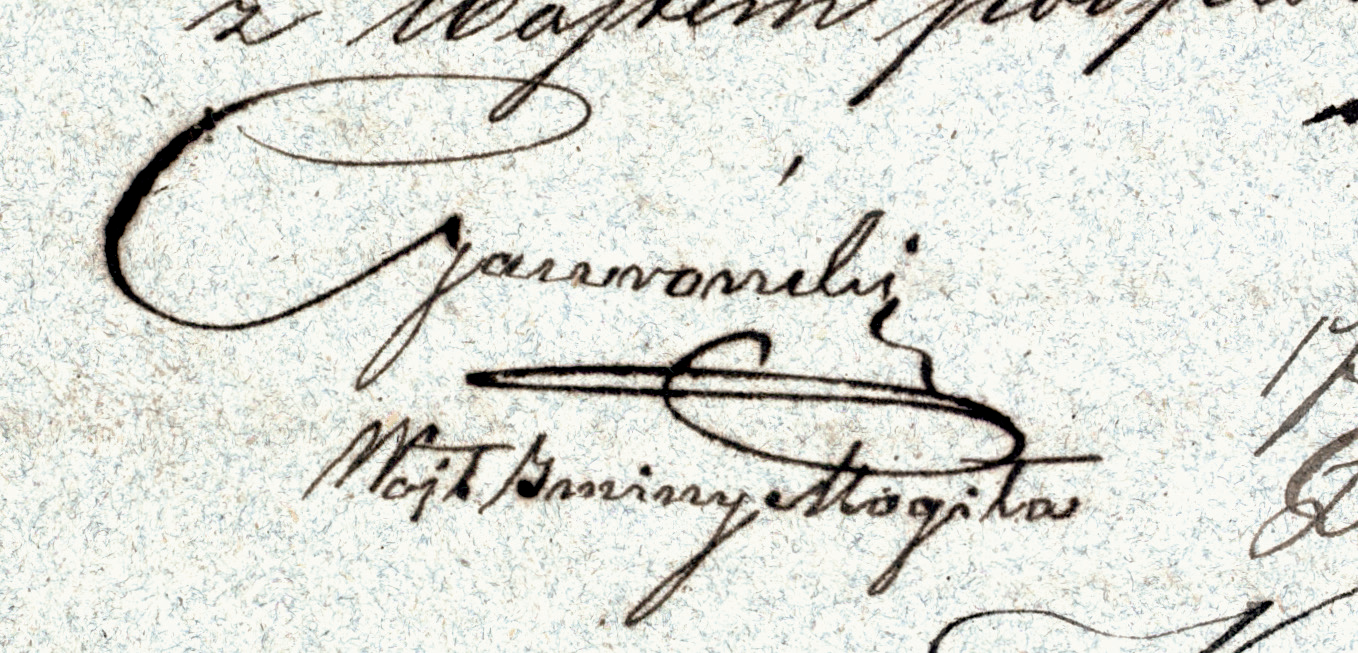 z Wojtem
Gawroński
Wojt Gminy Mogiła